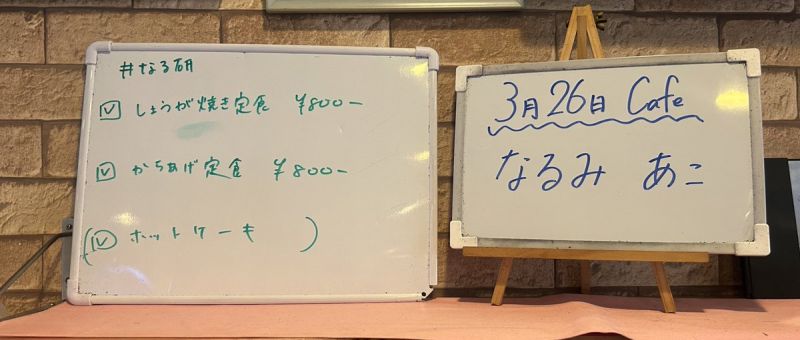 #なる研
☑ しょうが焼き定食 ¥800-
☑ からあげ定食 ¥800-
(☑ ホットケーキ )
3月26日 Cafe
なるみ あこ